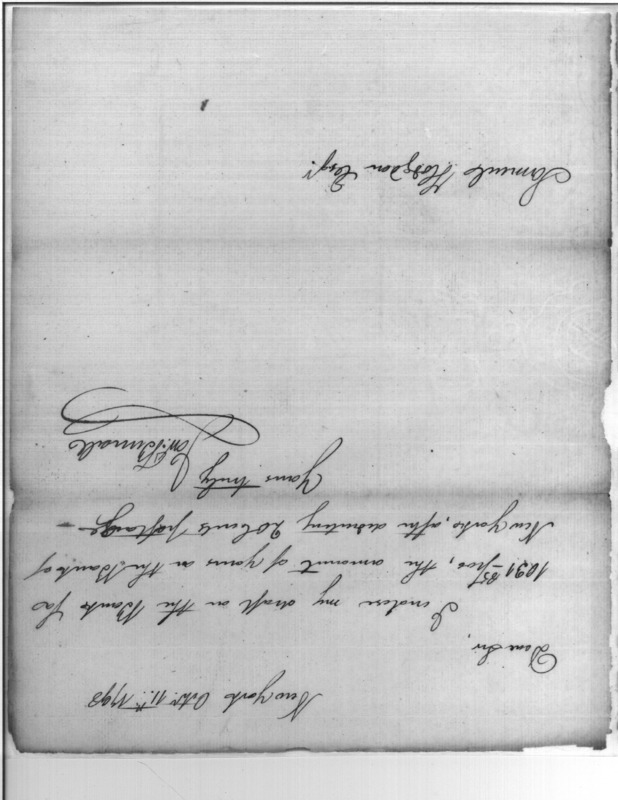 New York Octr. 11th. 1792
Dear Sir,
I inclose my draft on the Bank for
1031 85/100, the amount of yours on the Bank of
New York, after deducting 20 Cents postage
Yours truly
Samuel Hodgdon Esqr.